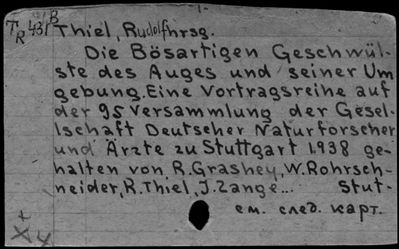 TR 431 B Thiel, Rudolf hrsg.
Die Bösartigen Geschwül-
ste des Auges und seiner Um
gebung. Eine Vortragsreihe auf
der 95 Versammlung der Gesel-
lschaft Deutscher Naturforscher
und Ärzte zu Stuttgart 1938 ge-
halten von R. Grashey, W. Rohrsch-
neider, R. Thiel, J. Zange... Stut-
см. след. карт.